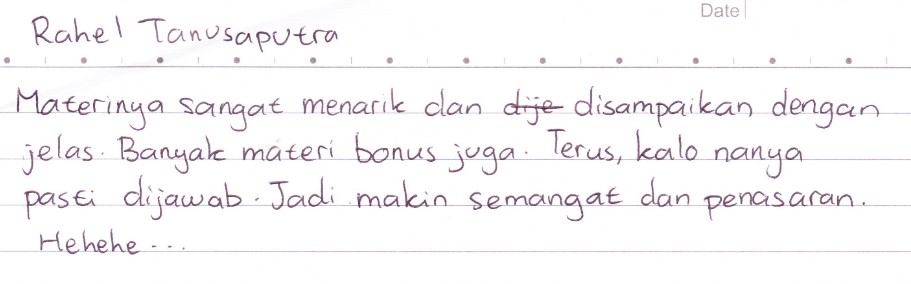 Date
Rahel Tanusaputra
Materinya sangat menarik dan dije disampaikan dengan
jelas. Banyak materi bonus juga. Terus, kalo nanya
pasti dijawab. Jadi makin semangat dan penasaran.
Hehehe...